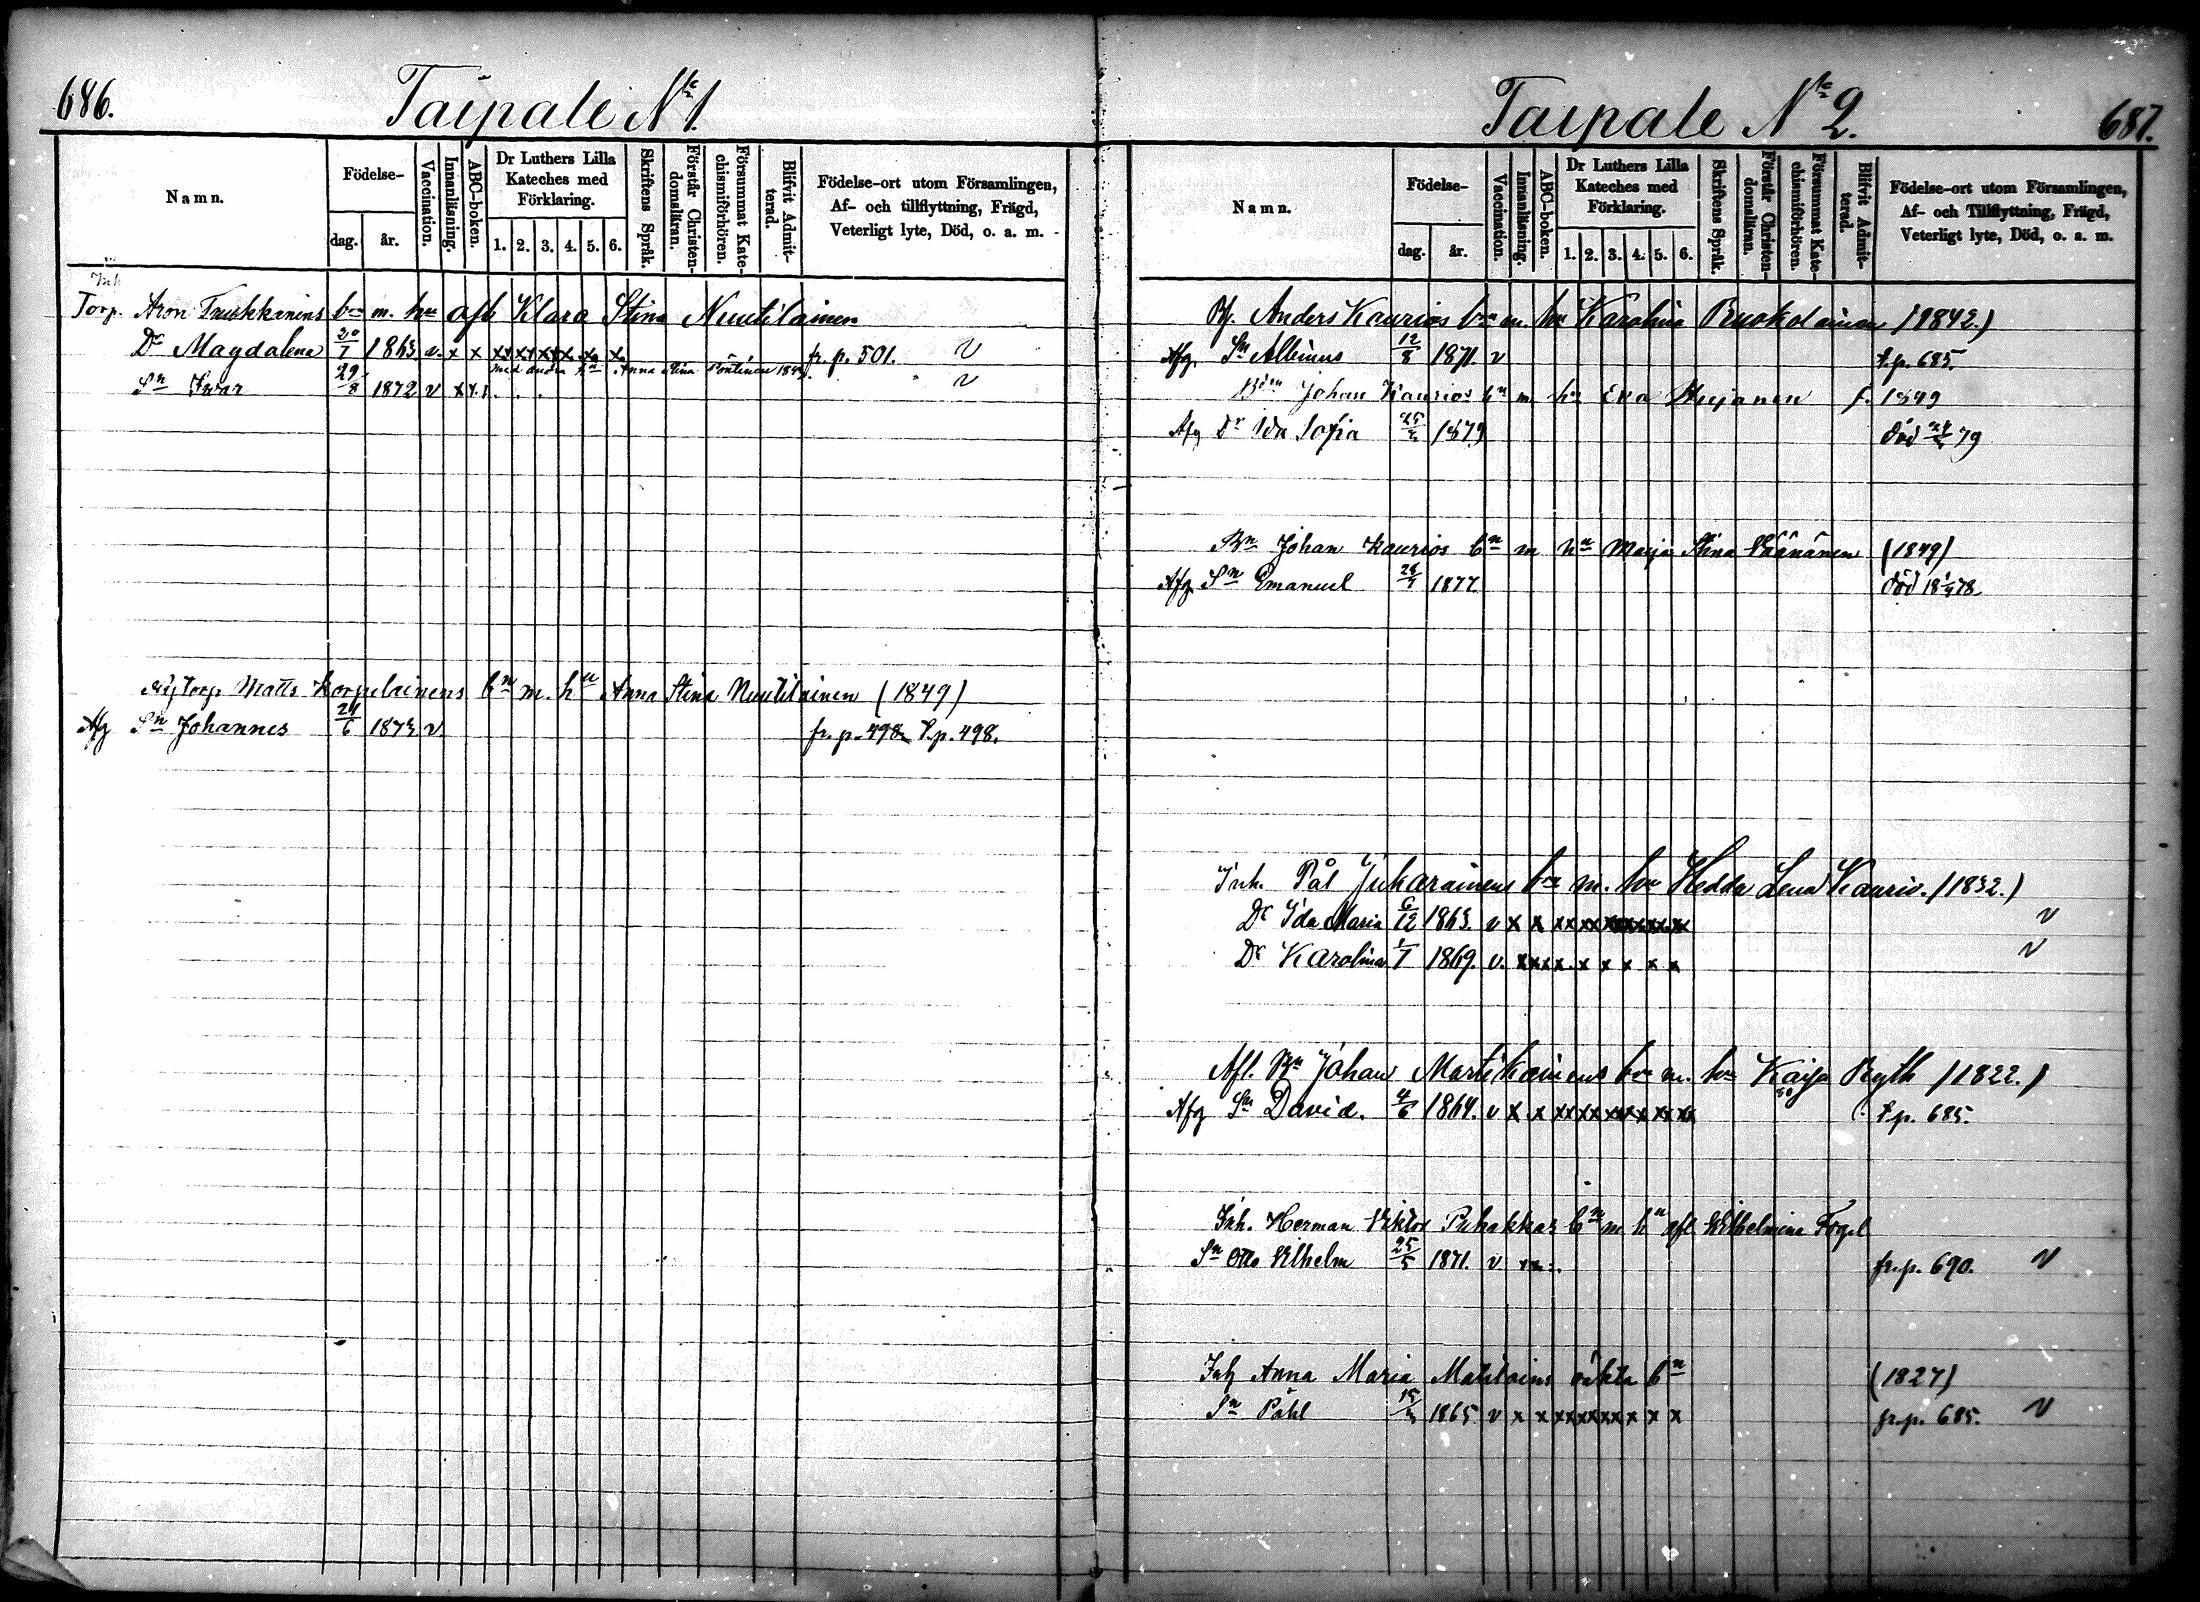 686.
Taipale No 1.
Namn.
Födelse-
dag.
år.
Vaccination.
Innanläsning.
ABC-boken.
Dr Luthers Lilla Kateches med Förklaring.
1. 2. 3. 4. 5. 6.
Skriftens Språk.
Förstår Christendomsläran.
Försummat Katechismiförhören.
Blifvit Admitterad.
Födelse-ort utom Församlingen,
Af- och tillflyttning, Frägd,
Veterligt lyte, Död, o. a. m.
Inh
Torp. Aron bn m. hu afl Klara Stina Nuutilainen
Dr Magdalena 30/1 1863 v. x x xx xx xx x x x fr. p. 501. v
med andra hu Anna Stina Pöntinen
Sn Ivar 29/8 1872 v x x v
Nytorp Matts Korpelainens bn m. hu Anna Stina Nuutilainen (1849)
Afg Sn Johannes 24/6 1873 v fr. p. 498 T. p. 498.
Taipale No 2.
687.
Namn.
Födelse-
dag.
år.
Vaccination.
Innanläsning.
ABC-boken.
Dr Luthers Lilla Kateches med Förklaring.
1. 2. 3. 4. 5. 6.
Skriftens Språk.
Förstår Christendomsläran.
Försummat Katechismiförhören.
Blifvit Admitterad.
Födelse-ort utom Församlingen,
Af- och Tillflyttning, Frägd,
Veterligt lyte, Död, o. a. m.
Anders Kaurios bn m. hu Karolina Ruokolainen (1842.)
Afg. Sn Albinus 12/8 1871. v t. p. 685.
Johan Kaurios bn m hu Eva f. 1849
Afg Dr Ida Sofia 1879 död 79
Bn Johan Kaurios bn m hu Maija Stina Väänänen (1849)
Afg. Sn Emanuel 1877. död 78.
Inh. Pål Jukarainens bn m. hu Hedda Lena Kaurio. (1832.)
Dr Ida Maria 6/12 1863. v x x xx xx xx xx xx xx v
Dr Karolina 1869. v. x x x x. x x x x x v
Afl. Bn Johan Martikainens bn m. hu Kaisa Ryth (1822.)
Afg Sn David. 4/6 1864. v x x xx xx xx x xx xx t p. 685.
Inh. Herman Viktor Puhakkas bn m hu afl Wilhelmina Fogel
Sn Otto Vilhelm 25/5 1871. v fr. p. 690. v
Inh Anna Maria oäkta bn (1827)
Sn Påhl 1865 v x x xx xx xx x x x fr. p. 685. v